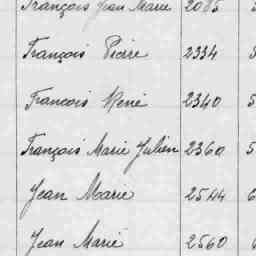 François Jean Marie 2085
François Pierre 2334
Francois René 2340
François Marie Julien 2360 5
Jean Marie 2544 6
Jean Marie 2560 6